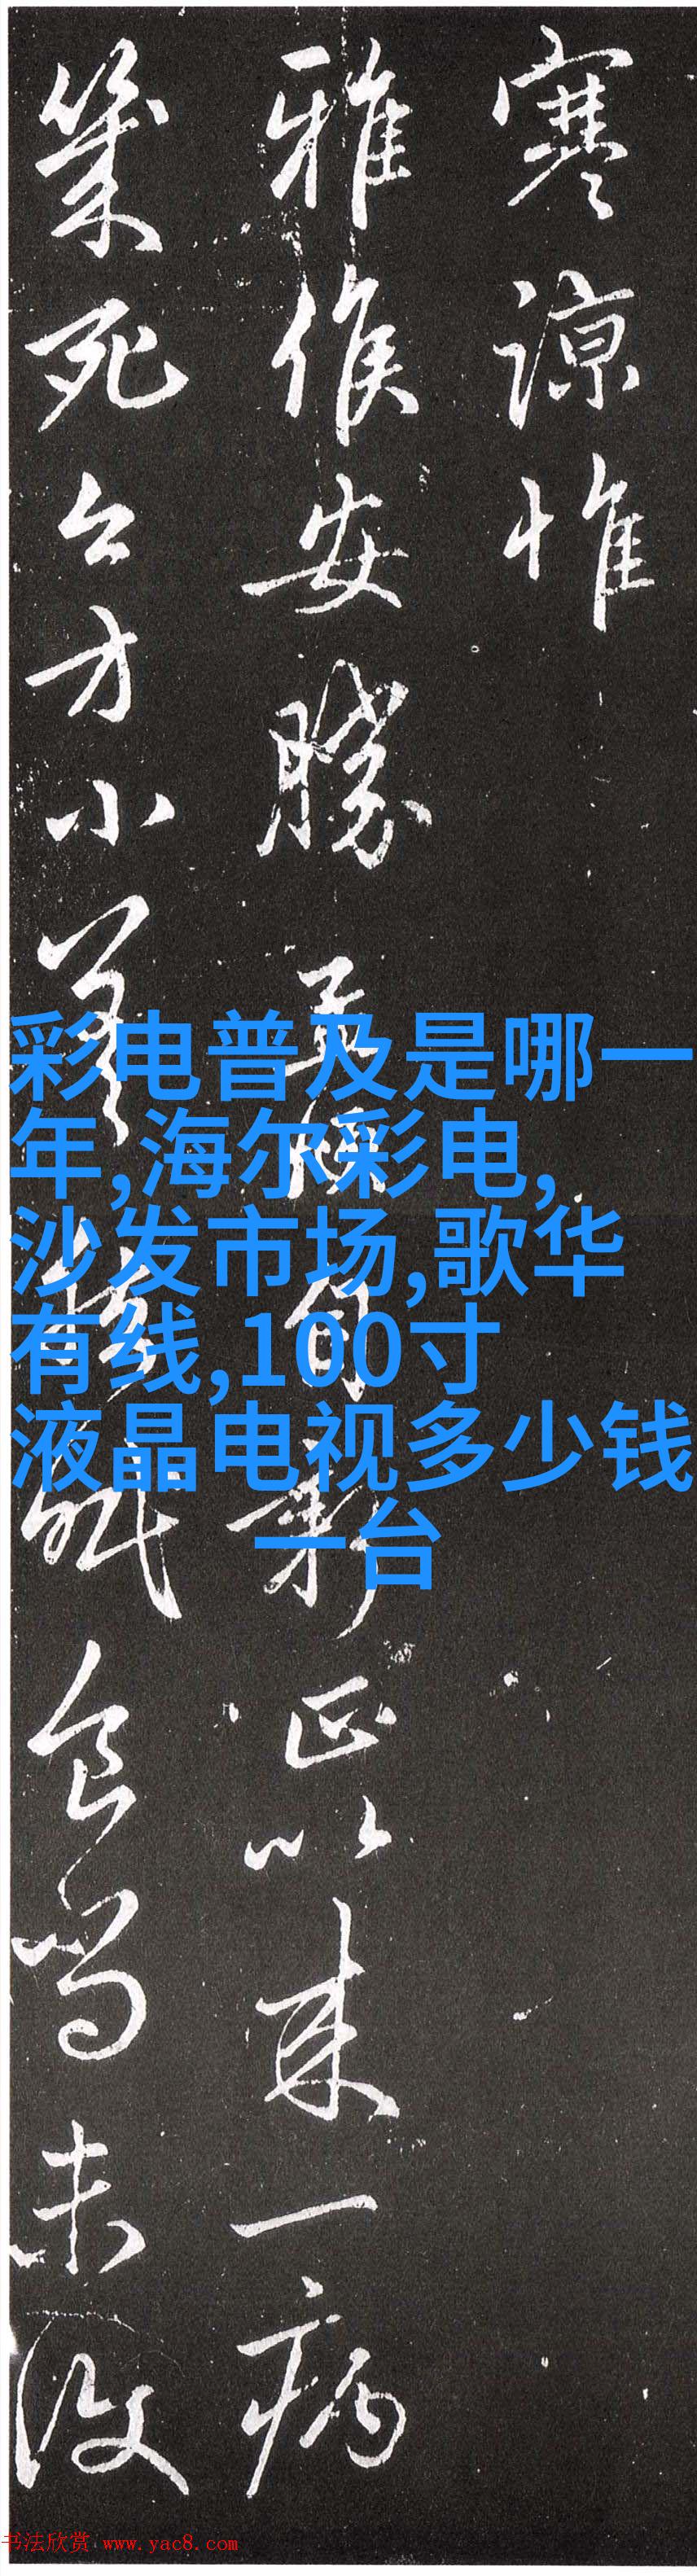 寒谅惟
雅候安胜
彩正以来一病
几死今方小差
食尚未复
彩电普及是哪一
年,海尔彩电,
沙发市场,歌华
有线,100寸
液晶电视多少钱
一台
书法欣赏 www.yac8.com